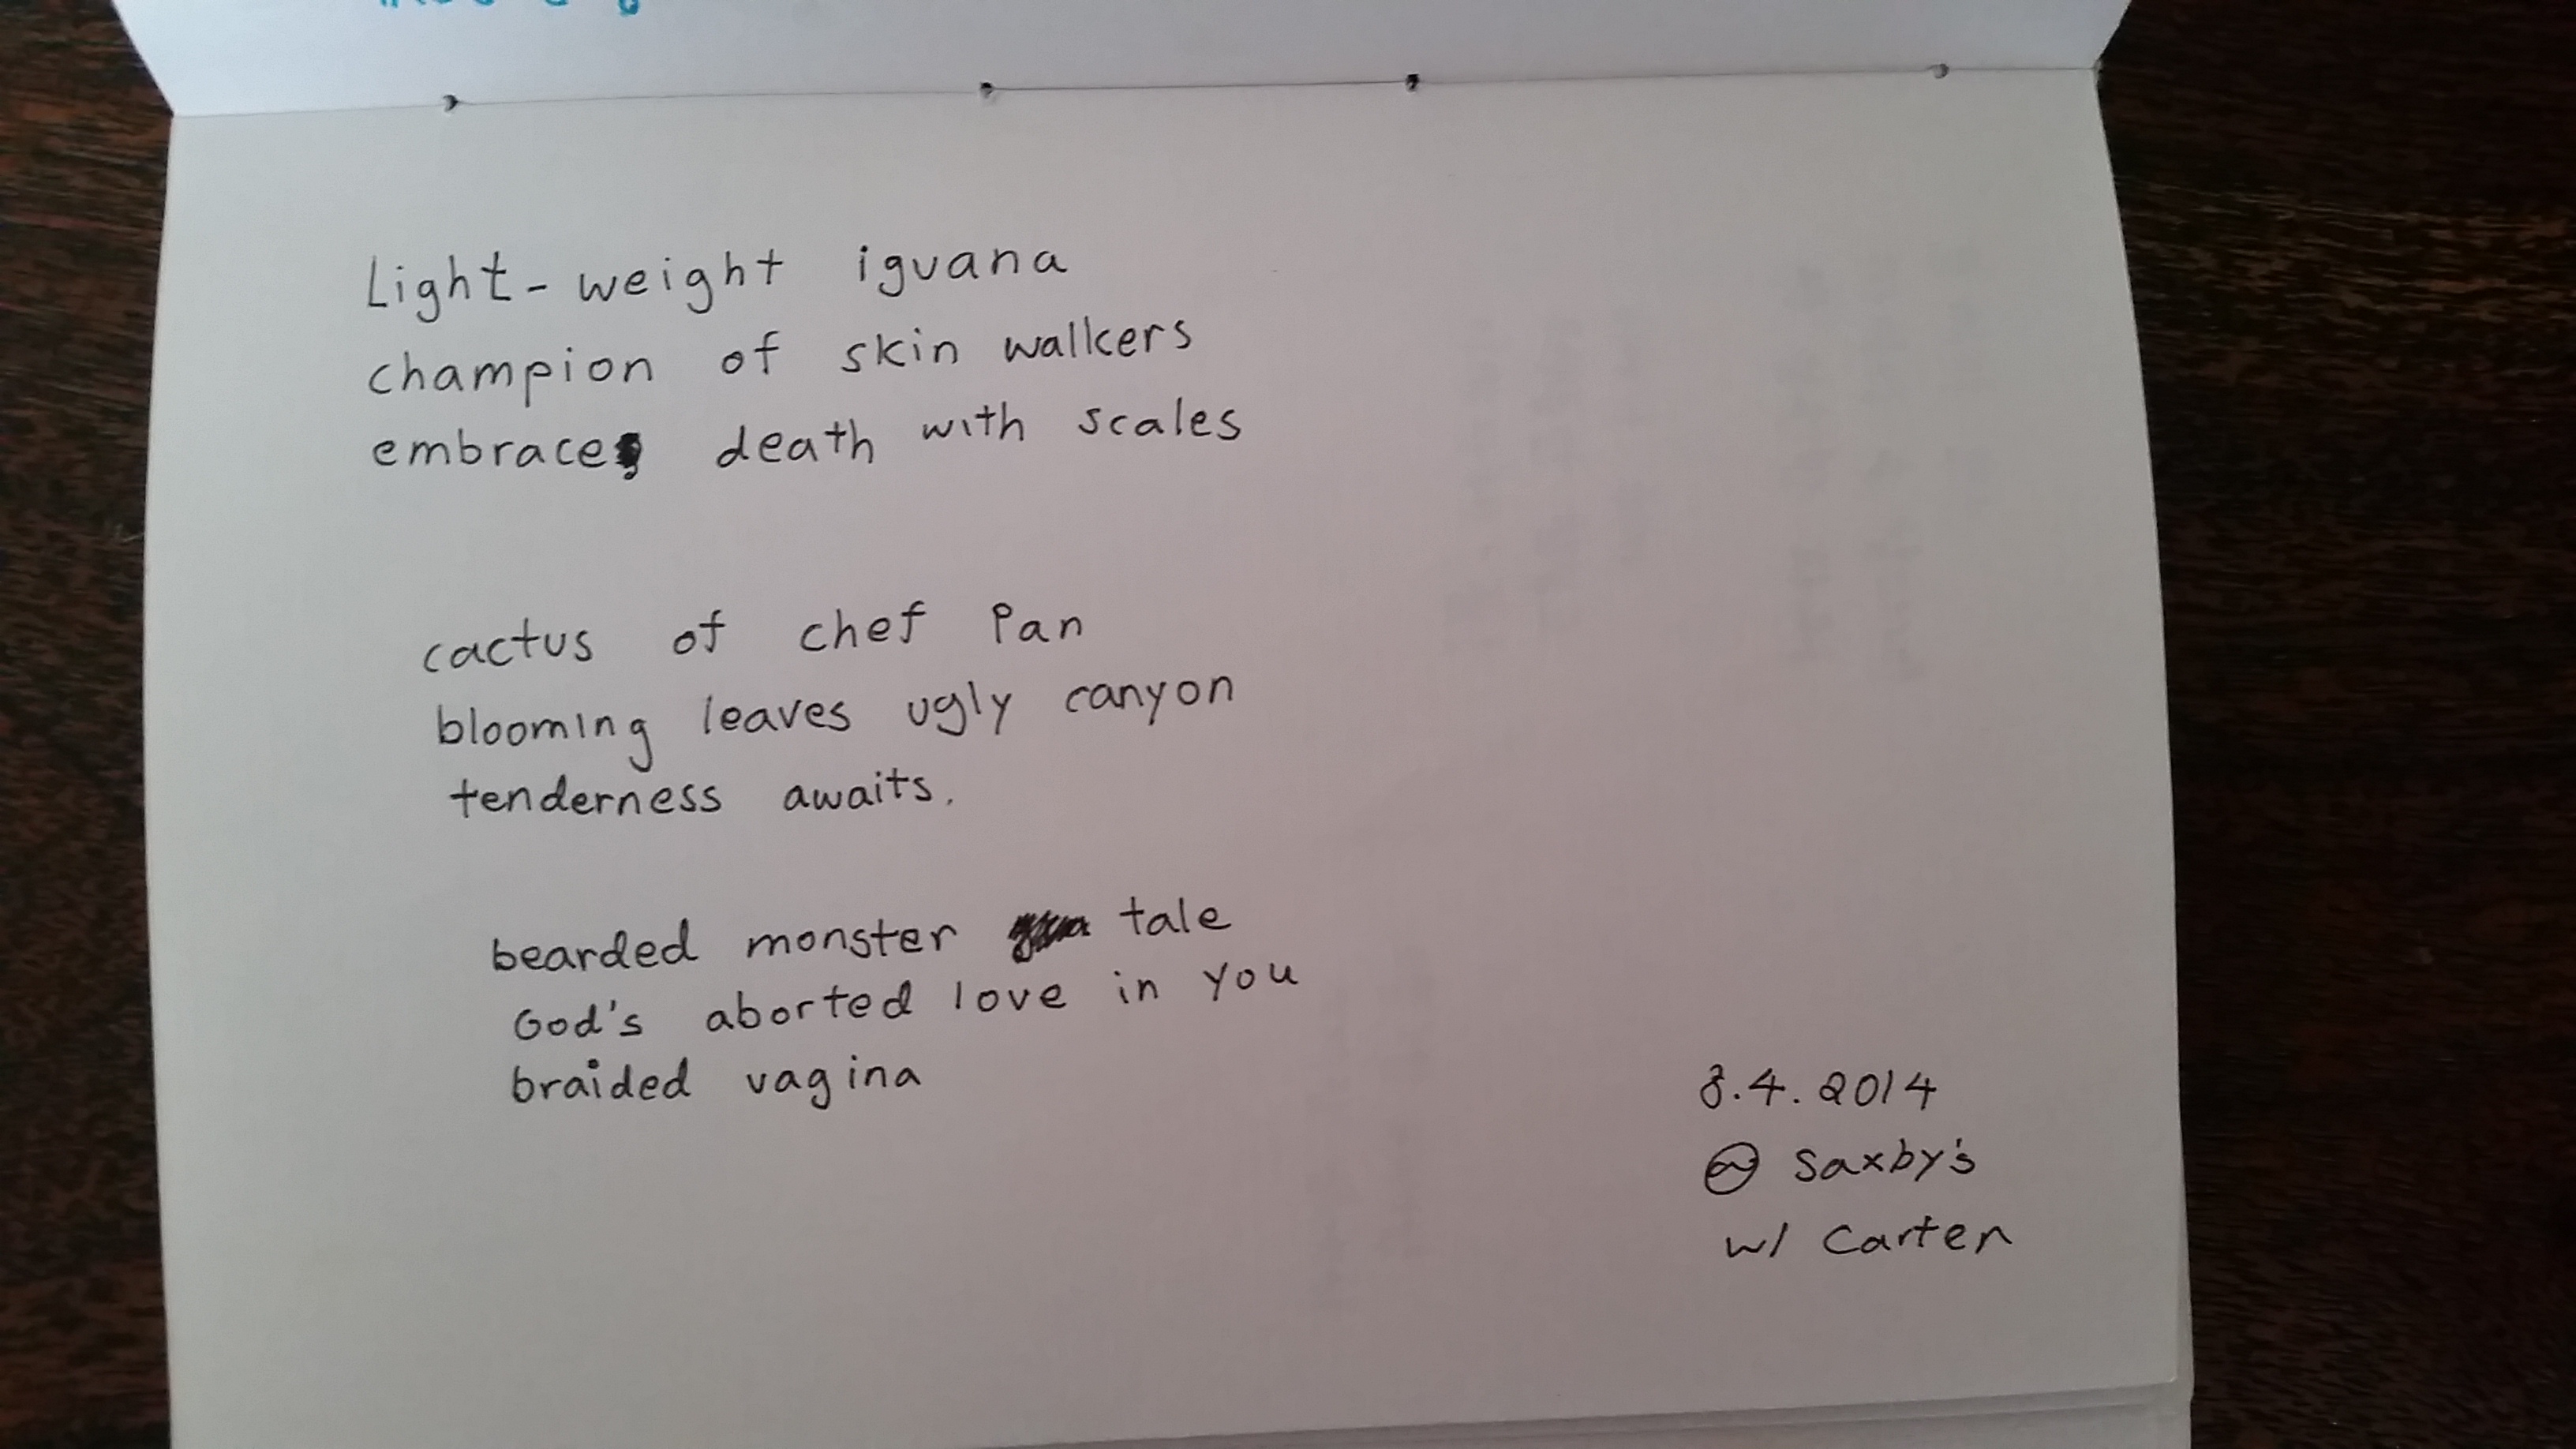 Light-weight iguana
champion of skin walkers
embraces death with scales
cactus of chef Pan
blooming leaves ugly canyon
tenderness awaits.
bearded monster tale
God's aborted love in you
braided vagina
8.4.2014
@ Saxby's
w/ Carter